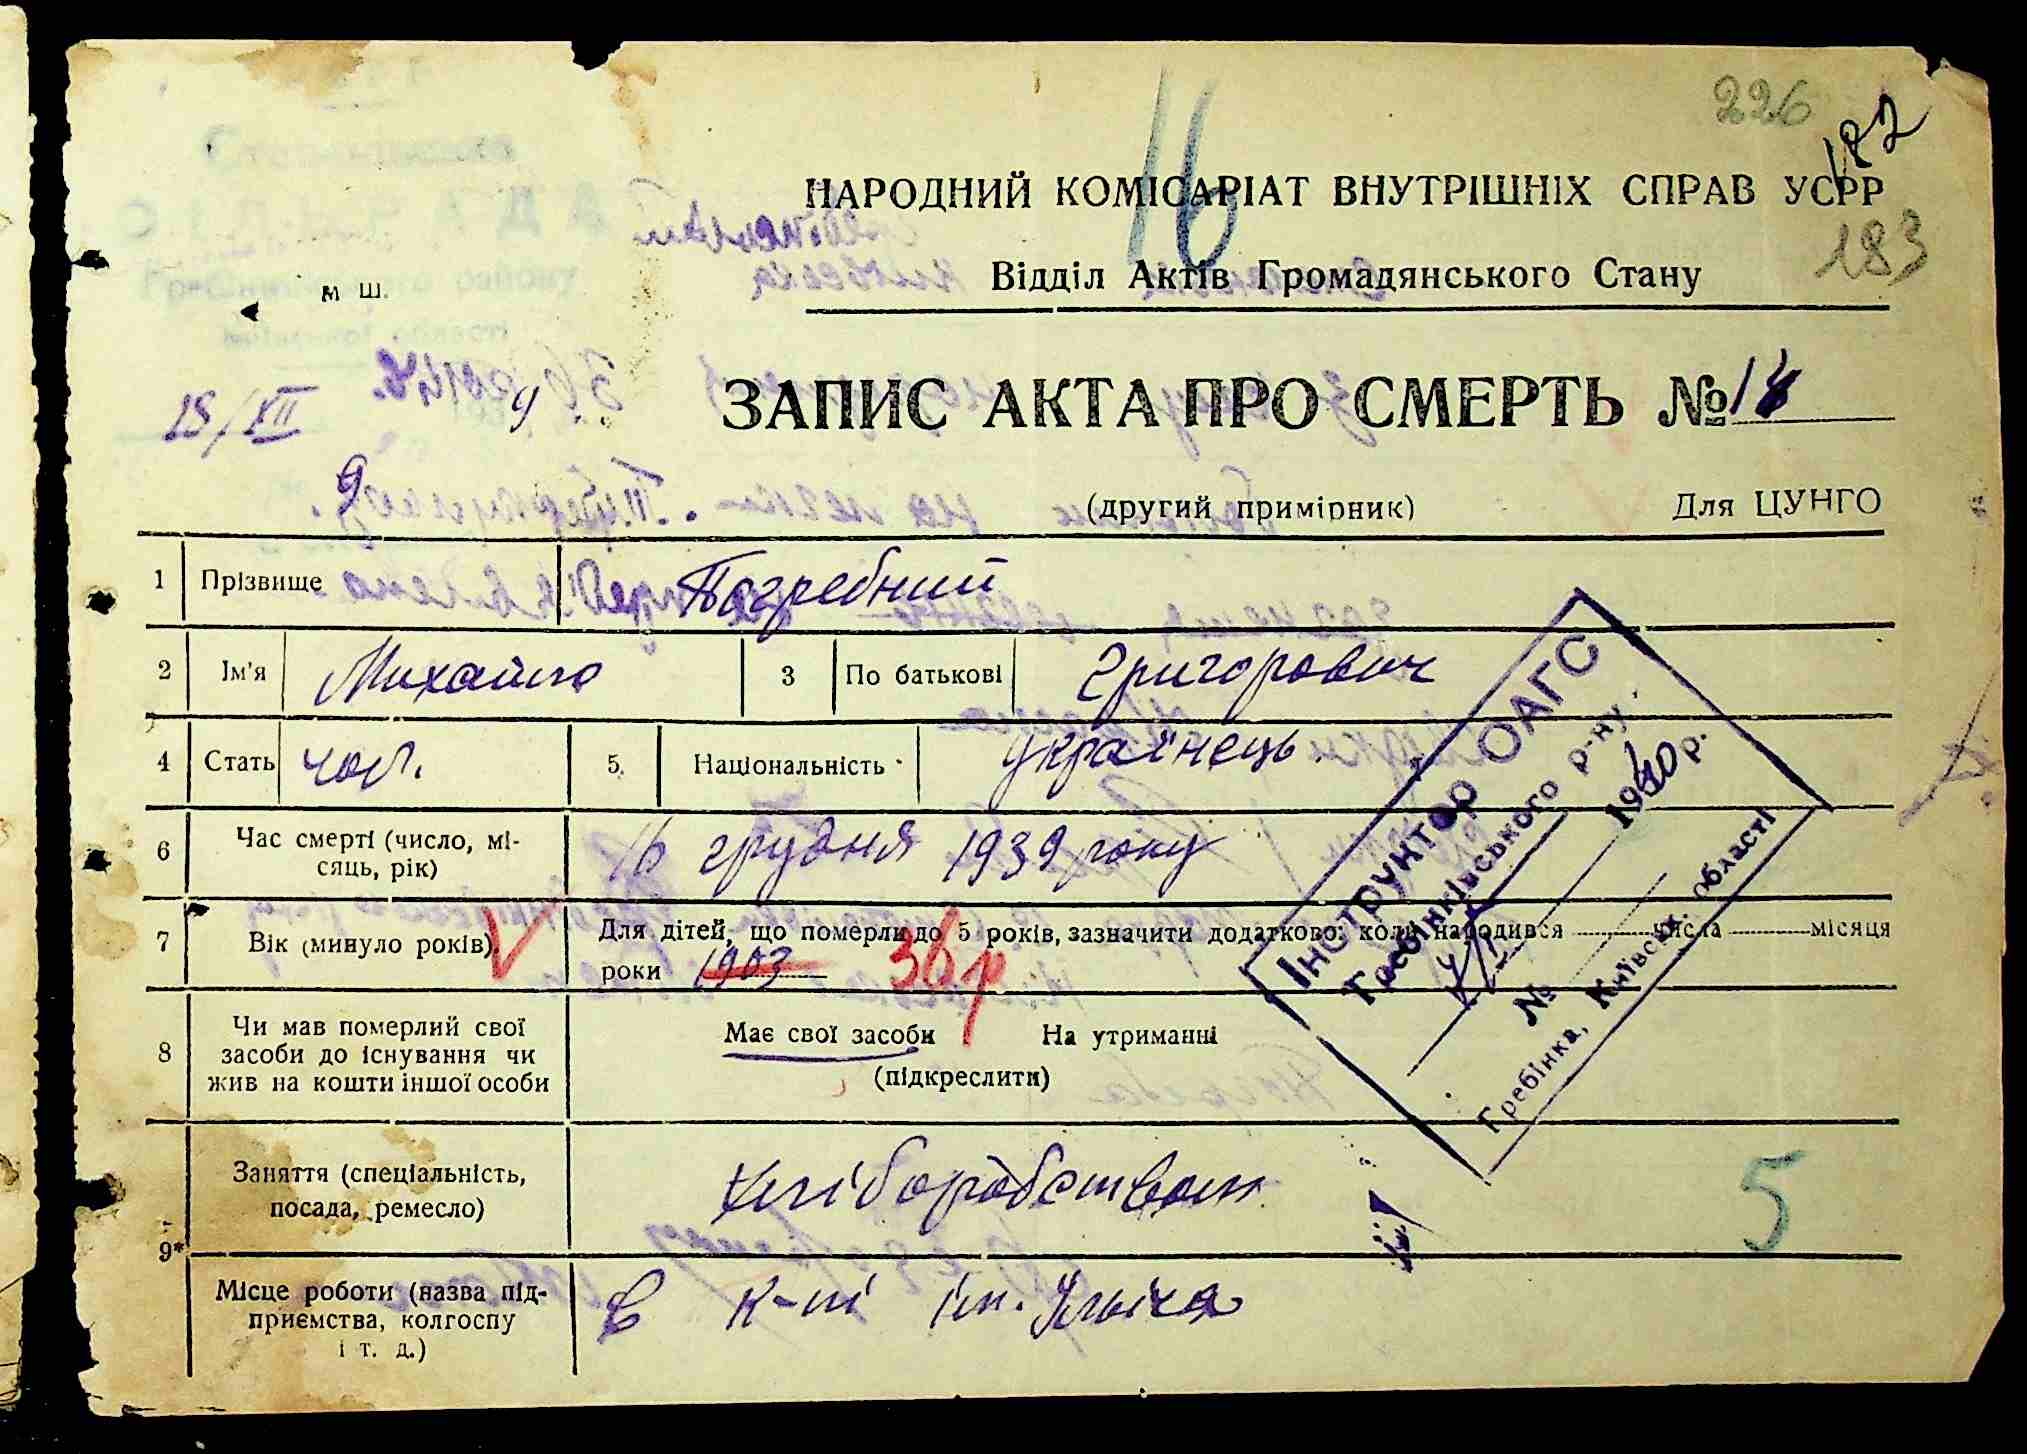 226
182
16
НАРОДНИЙ КОМІСАРІАТ ВНУТРІШНІХ СПРАВ УСРР
183
Відділ Актів Громадянського Стану
м ш.
18/XII 9
ЗАПИС АКТА ПРО СМЕРТЬ № 14
9
(другий примірник) Для ЦУНГО
1 Прізвище Погребний
2 Ім'я Михайло 3 По батькові Григорович
4 Стать чол. 5. Національність українець
6 Час смерті (число, мі-
сяць, рік) 16 грудня 1939 року
7 Вік (минуло років) Для дітей, що померли до 5 років, зазначити додатково: коли народився числа місяця
роки 1903 36 р
8 Чи мав померлий свої
засоби до існування чи
жив на кошти іншої особи
Має свої засоби На утриманні
(підкреслити)
Заняття (спеціальність,
посада, ремесло) хліборобством
9*
Місце роботи (назва під-
приємства, колгоспу
і т. д.) в к-пі ім. Ілліча
Інструктор ОАГС
Гребінківського р-ну
1940 р.
№
Гребінка, Київськ. області
5